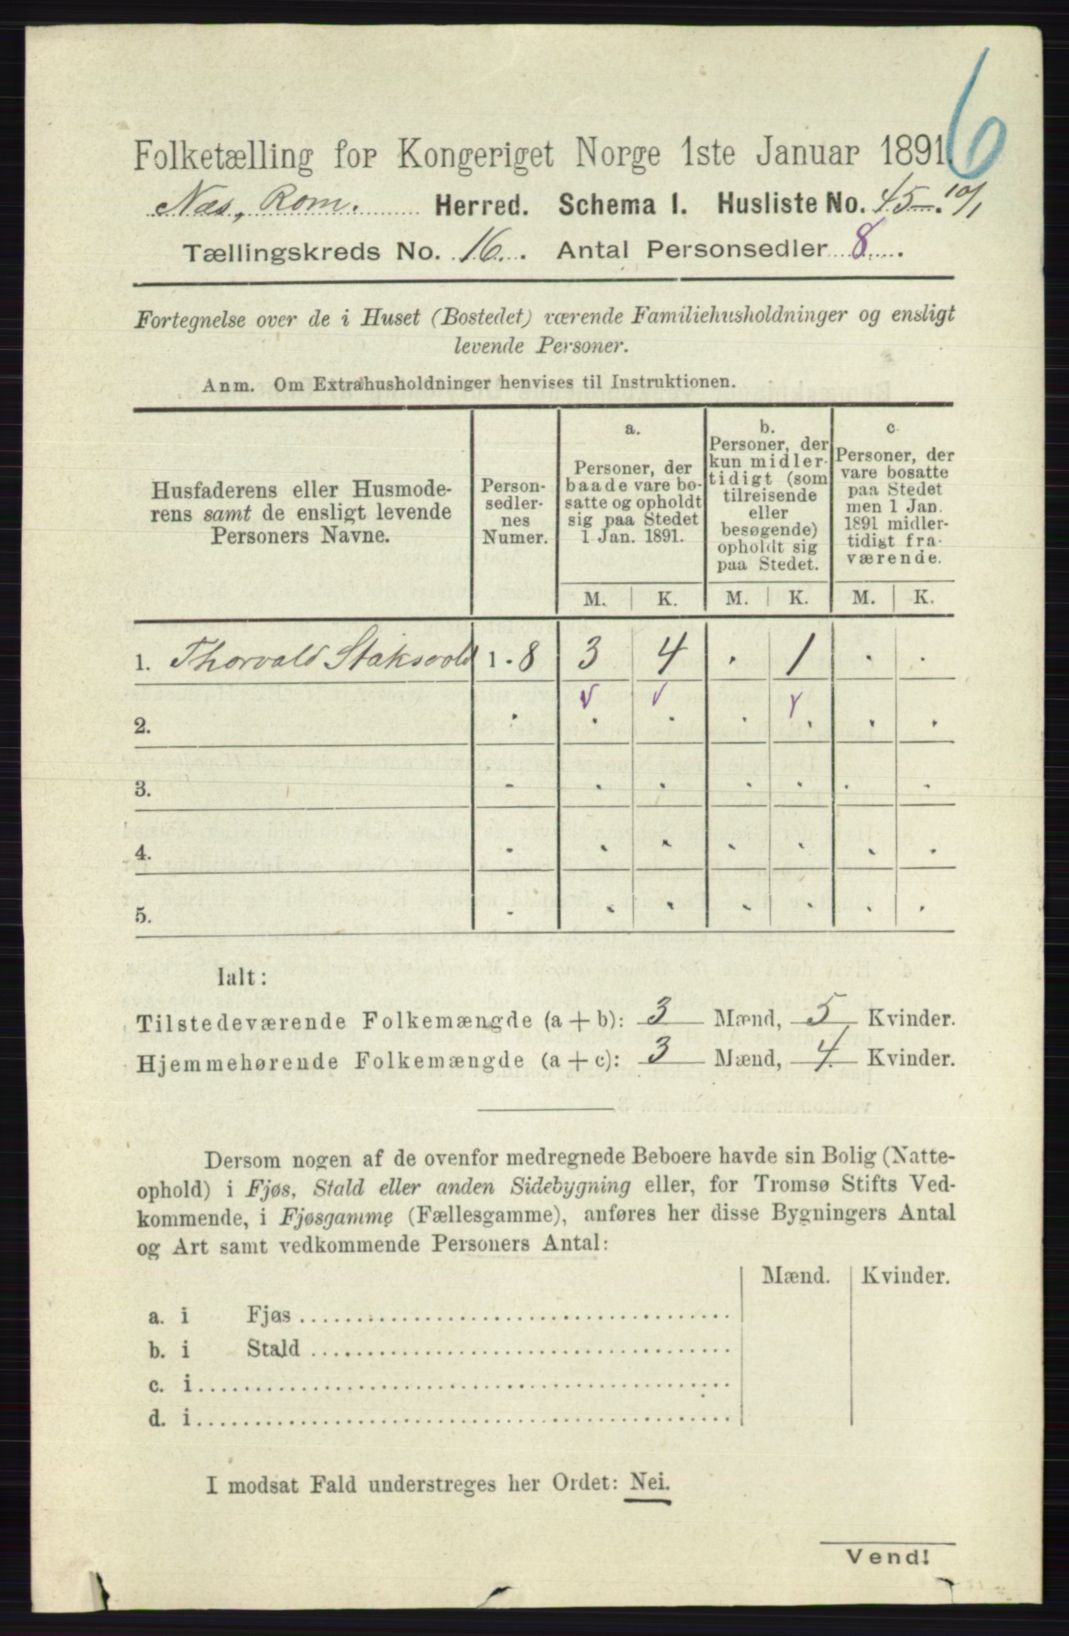 6
Folketælling for Kongeriget Norge 1ste Januar 1891.
Næs, Rom. Herred. Schema I. Husliste No. 45. 10/1
Tællingskreds No. 16. Antal Personsedler 8.
Fortegnelse over de i Huset (Bostedet) værende Familiehusholdninger og ensligt
levende Personer.
Anm. Om Extrahusholdninger henvises til Instruktionen.
Husfaderens eller Husmode-
rens samt de ensligt levende
Personers Navne.
Person-
sedler-
nes
Numer.
a.
Personer, der
baade vare bo-
satte og opholdt
sig paa Stedet
1 Jan. 1891.
b.
Personer, der
kun midler-
tidigt (som
tilreisende
eller
besøgende)
opholdt sig
paa Stedet.
c.
Personer, der
vare bosatte
paa Stedet
men 1 Jan.
1891 midler-
tidigt fra-
værende.
M. K. M. K. M. K.
1. Thorvald Staksvold 1 - 8 3 4 . 1 . .
2. . . . . . . .
3. - . . . . . .
4. - . . . . . .
5. - . . . . . .
Ialt:
Tilstedeværende Folkemængde (a + b): 3 Mænd, 5 Kvinder.
Hjemmehørende Folkemængde (a + c): 3 Mænd, 4 Kvinder.
Dersom nogen af de ovenfor medregnede Beboere havde sin Bolig (Natte-
ophold) i Fjøs, Stald eller anden Sidebygning eller, for Tromsø Stifts Ved-
kommende, i Fjøsgamme (Fællesgamme), anføres her disse Bygningers Antal
og Art samt vedkommende Personers Antal:
Mænd. Kvinder.
a. i Fjøs
b. i Stald
c. i
d. i
I modsat Fald understreges her Ordet: Nei.
Vend!